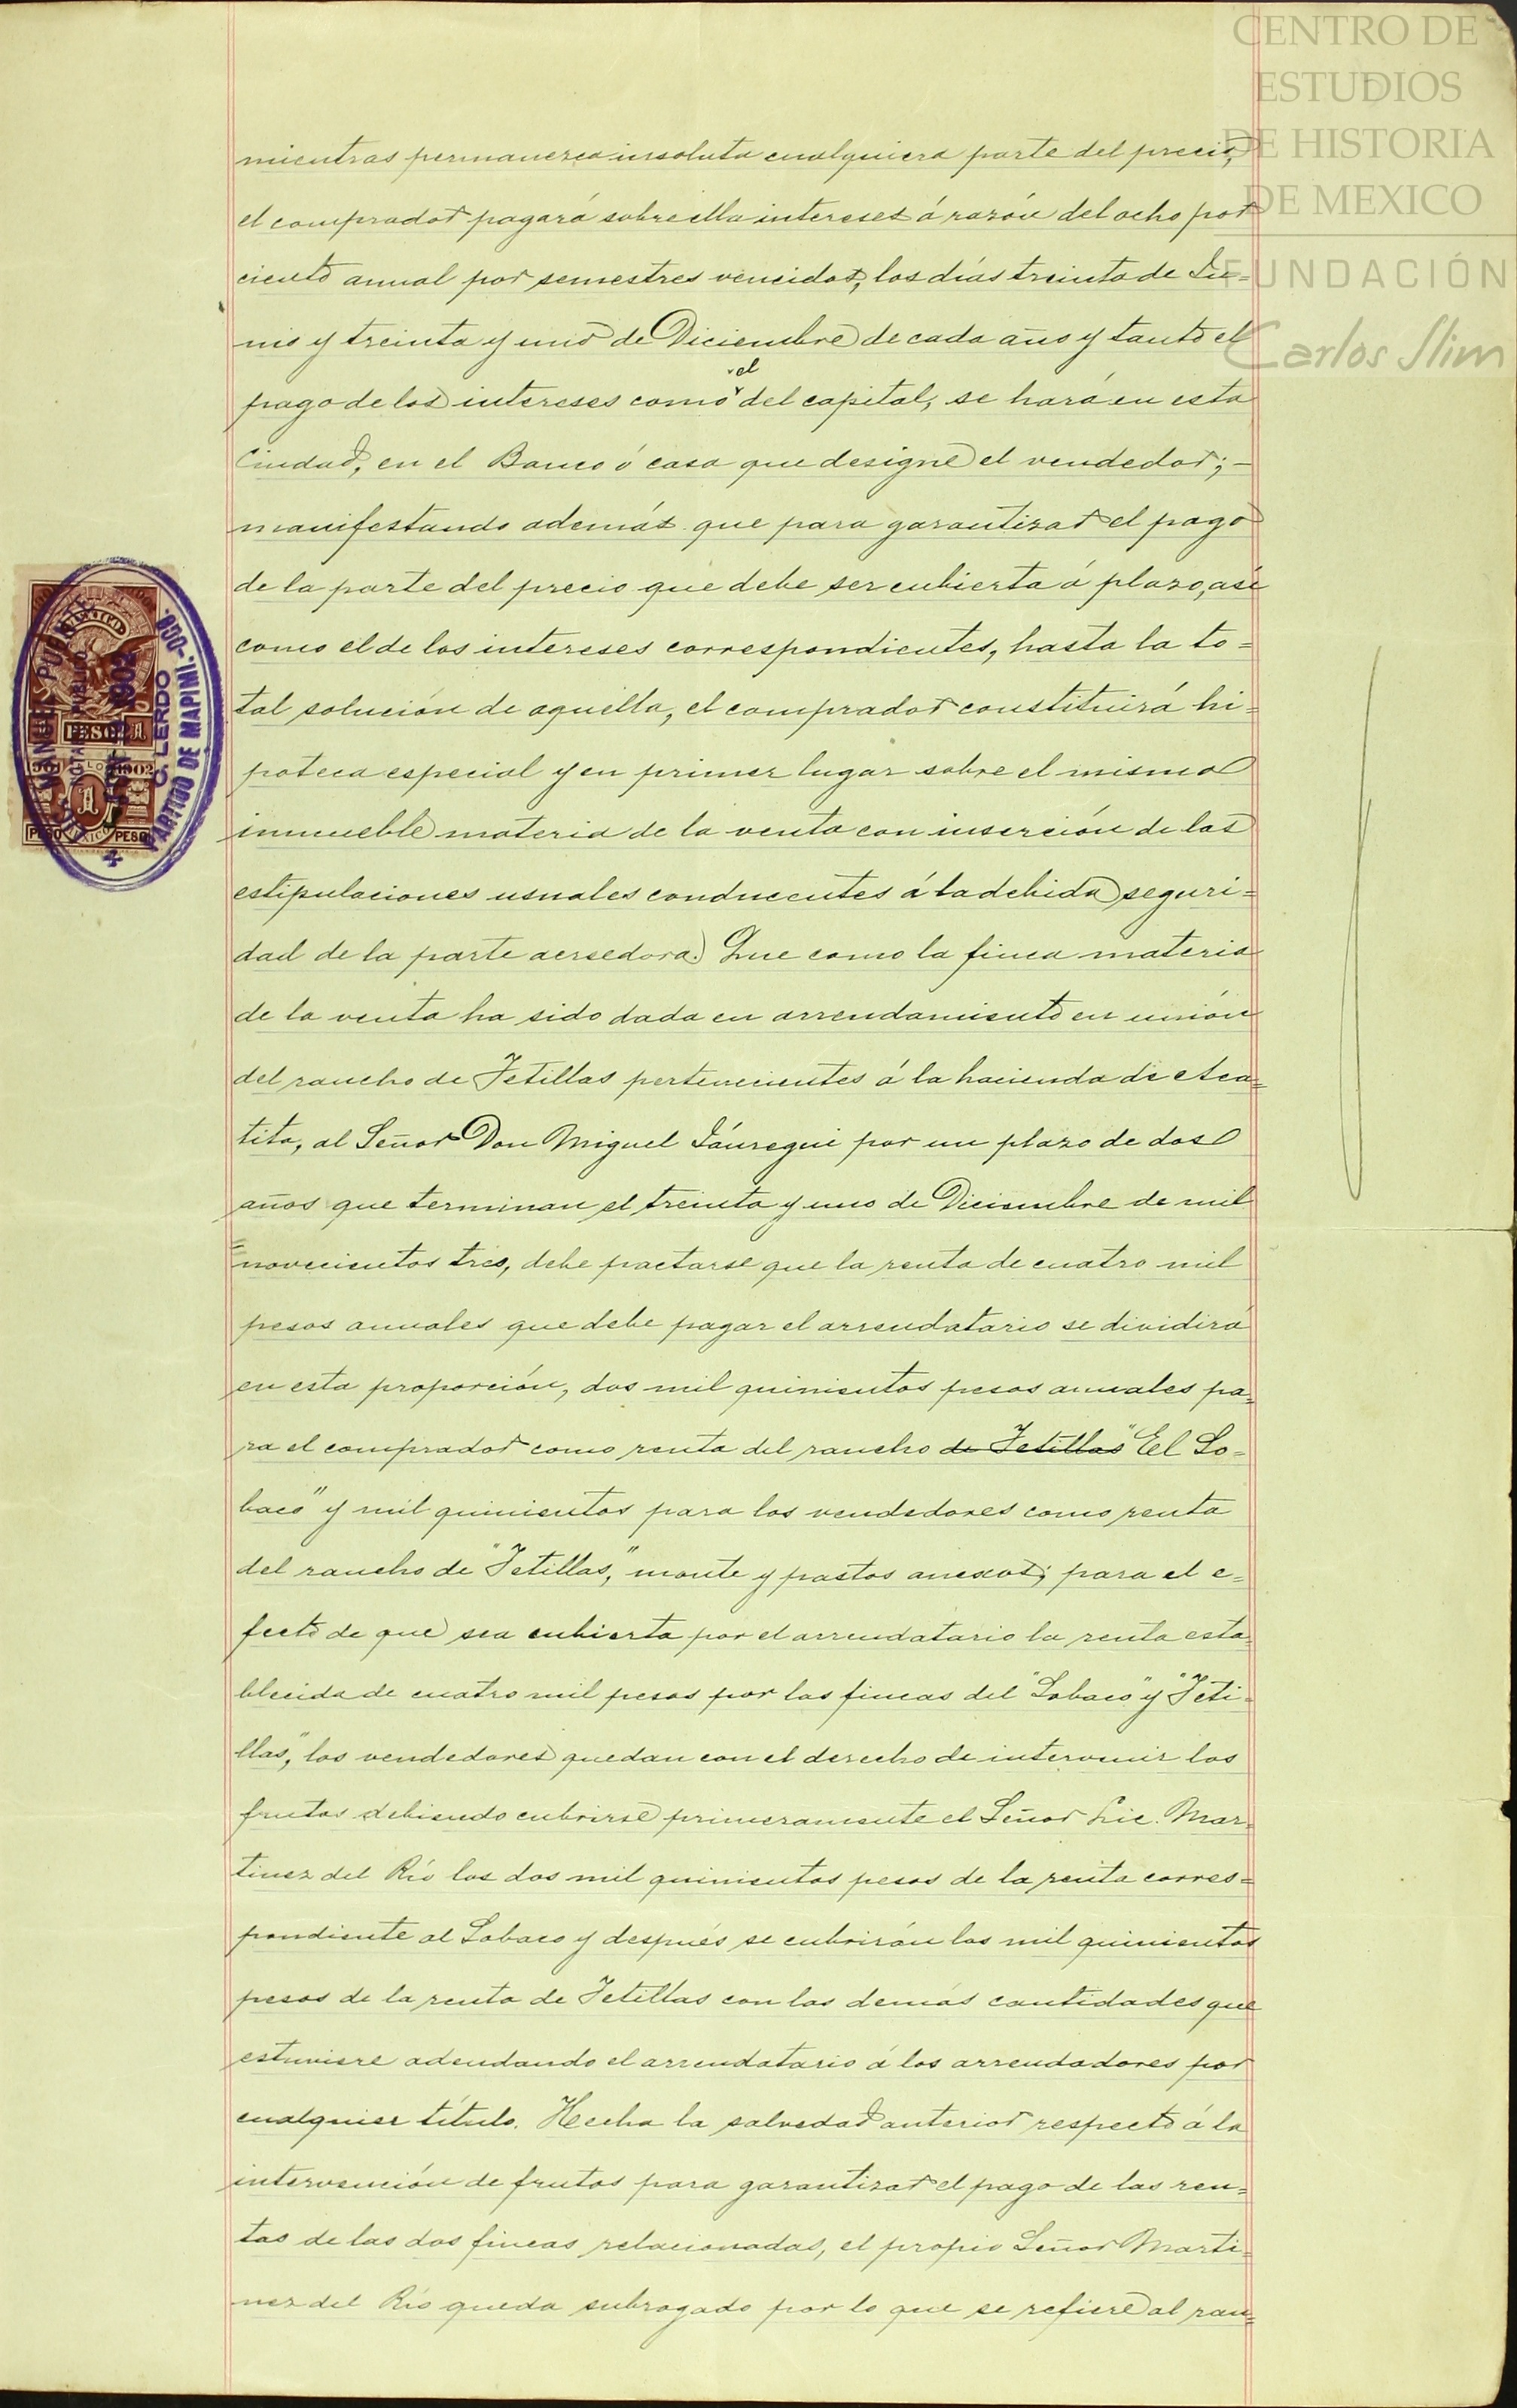 CENTRO DE
ESTUDIOS
DE HISTORIA
DE MEXICO
FUNDACIÓN
Carlos Slim
mientras permanezca insoluta cualquiera parte del precio,
el comprador pagará sobre ella intereses á razón del ocho por
ciento anual por semestres vencidos, los días treinta de Ju=
nio y treinta y uno de Diciembre de cada año y tanto el
el
pago de los intereses como del capital, se hará en esta
Ciudad, en el Banco ó casa que designe el vendedor; -
manifestando además que para garantizar el pago
de la parte del precio que debe ser cubierta á plazo, asi
como el de los intereses correspondientes, hasta la to=
tal solución de aquella, el comprador constituirá hi=
poteca especial y en primer lugar sobre el mismo
inmueble materia de la venta con inserción de las
estipulaciones usuales conducentes á la debida seguri=
dad de la parte acreedora. Que como la finca materia
de la venta ha sido dada en arrendamiento en unión
del rancho de Tetillas pertenecientes á la hacienda de Ata=
tito, al Señor Don Miguel Jáuregui por un plazo de dos
años que terminan el treinta y uno de Diciembre de mil
novecientos tres, debe pactarse que la renta de cuatro mil
pesos anuales que debe pagar el arrendatario se dividirá
en esta proporción, dos mil quinientos pesos anuales pa=
ra el comprador como renta del rancho de Tetillas "El Lo=
baco" y mil quinientos para los vendedores como renta
del rancho de "Tetillas," monte y pastos anexos; para el e=
fecto de que sea cubierta por el arrendatario la renta esta=
blecida de cuatro mil pesos por las fincas del "Lobaco" y "Teti=
llas," los vendedores quedan con el derecho de intervenir los
frutos debiendo cubrirse primeramente el Señor Lic. Mar=
tinez del Río los dos mil quinientos pesos de la renta corres=
pondiente al Lobaco y después se cubrirán los mil quinientos
pesos de la renta de Tetillas con las demás cantidades que
estuviere adeudando el arrendatario á los arrendadores por
cualquier título. Hecha la salvedad anterior respecto á la
intervención de frutos para garantizar el pago de las ren=
tas de las dos fincas relacionadas, el propio Señor Marti=
nez del Río queda subrogado por lo que se refiere al ran=
PESO 1
1902
PESO
MEXICO
PESO
1902
C. LERDO
PARTIDO DE MAPIMI.-DGO.